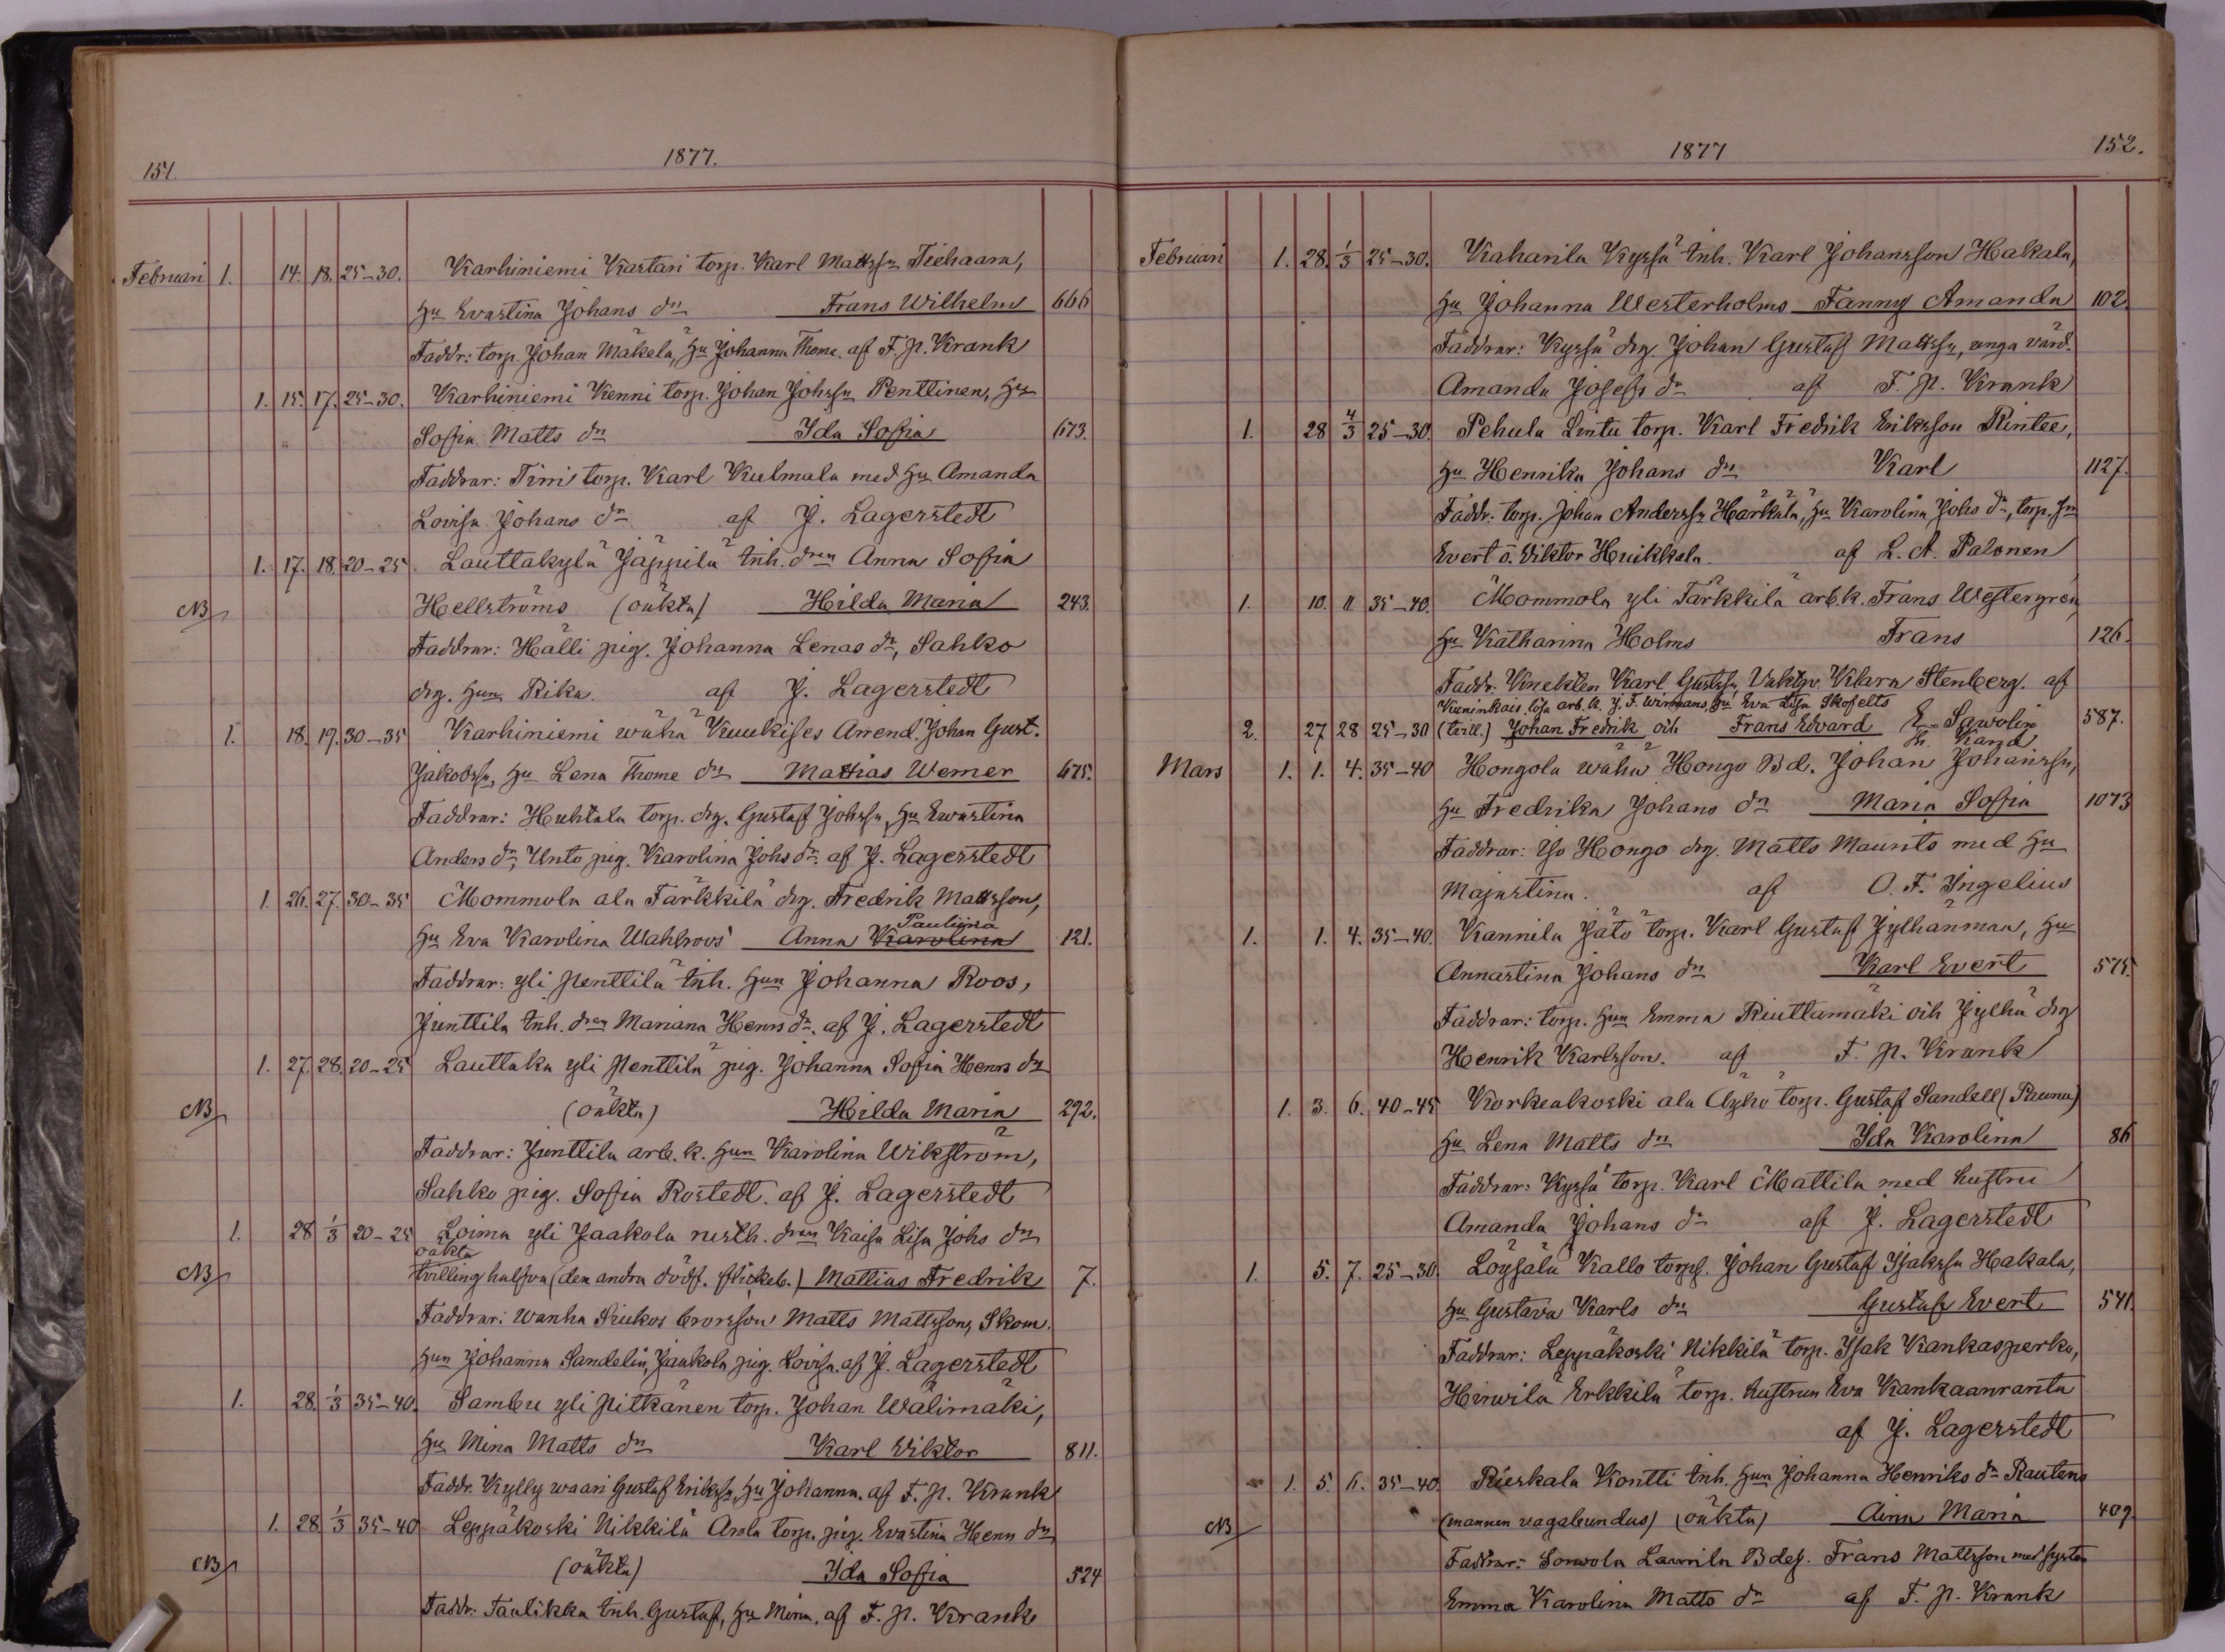 151.
1877.
Februari 1. 14. 18. 25-30. Karhiniemi Kastari torp. Karl Mattssn Tiehaara,
Hu Evastina Johans dr Frans Wilhelm 666
Faddr: torp. Johan Mäkelä, Hu Johanna Thome. af F. P. Krank
1. 15. 17. 25-30. Karhiniemi Kenni torp. Johan Johssn Penttinen, Hu
Sofia Matts dr Ida Sofia 673.
Faddrar: Timi torp. Karl Kulmala med Hu Amanda
Lovisa Johans dr af J. Lagerstedt
1. 17. 18. 20-25 Lauttakylä Jäppilä Inh. dren Anna Sofia
NB Hellströms (oäkta) Hilda Maria 243.
Faddrar: Hälli pig. Johanna Lenas dr, Sahko
drg. Hun Rika. af J. Lagerstedt
1. 18. 19. 30-35 Karhiniemi wähä Kuukises Arrend. Johan Gust.
Jakobssn, Hu Lena Thome dr Mattias Werner 675.
Faddrar: Huhtala torp. drg. Gustaf Johssn, Hu Ewastina
Anders dr, Unto pig. Karolina Johs dr. af J. Lagerstedt
1. 26. 27. 30-35 Mommola ala Färkkilä drg. Fredrik Mattsson,
Paulijna
Hu Eva Karolina Wahlroos Anna Karolina 121.
Faddrar: yli Penttilä Inh. Hun Johanna Roos,
Junttila Inh. dren Mariana Henrs dr. af J. Lagerstedt
1. 27. 28. 20-25 Lauttaka yli Penttilä pig. Johanna Sofia Henrs dr
NB (oäkta) Hilda Maria 292.
Faddrar: Junttila arb. k. Hun Karolina Wikström,
Sahko pig. Sofia Rostedt. af J. Lagerstedt
1. 28 1/3 20-25 Loima yli Jaakola dren Kaisa Lisa Johs dr
oäkta
NB tvillinghalfva (den andra dödf. flickeb.) Mattias Fredrik 7.
Faddrar: Wanha Matts Mattsson, Skom.
Hun Johanna Sandelin, Jaakola pig. Lovisa. af J. Lagerstedt
1. 28. 1/3 35-40. Sambu yli Pitkänen torp. Johan Wälimäki,
Hu Mina Matts dr Karl Viktor 811.
Faddr. Kylly waari Gustaf Erikssn, Hu Johanna. af F. P. Krank
1. 28 1/3 35-40 Leppäkoski Nikkilä Arola torp. pig. Evastina Henr dr
NB (oäkta) Ida Sofia 524
Faddr: Taulikka Inh. Gustaf, Hu Mina. af F. P. Krank
1877
152.
Februari 1. 28. 1/3 25-30. Kaharila Kyssä Inh. Karl Johansson Hakala,
Hu Johanna Westerholms Fanny Amanda 102.
Faddrar: Kyssä drg. Johan Gustaf Mattssn, unga värd.
Amanda Josefs dr af F. P. Krank
1. 28 4/3 25-30. Pehula Lintu torp. Karl Fredrik Eriksson Rintee,
Hu Henrika Johans dr Karl 1127.
Faddr: torp. Johan Anderssn Härkälä, Hu Karolina Johs dr, torp. sn
Evert o. Viktor Huikkala. af L. A. Palonen
1. 10. 11. 35-40. Mommola yli Färkkilä arb. k. Frans Westergren
Hu Katharina Holms Frans 126.
Faddr: Knekten Karl Gustssn, Vaktgv. Klara Stenberg. af
Kuninkais. lösa arb. k. J. F. Wirmans, Hu Eva Lisa Skofelts
2. 27 28 25-30 (tvill.) Johan Fredrik och Frans Edvard E. Sawolin 587.
Mars 1. 1. 4. 35-40 Hongola wähä Hongo Bd. Johan Johanssn,
Hu Fredrika Johans dr Maria Sofia 1073
Faddrar: Iso Hongo drg. Matts Maunts med Hu
Majastina. af O. F. Ingelius
1. 1. 4. 35-40. Kannila Jätö torp. Karl Gustaf Jylhänmaa, Hu
Annastina Johans dr Karl Evert 575.
Faddrar: torp. Hun Emma Riuttamäki och Jylhä drg
Henrik Karlsson. af F. P. Krank
1. 3. 6. 40-45 Korkeakoski ala Äyhö torp. Gustaf Sandell (Rauna)
Hu Lena Matts dr Ida Karolina 86
Faddrar: Kyssä torp. Karl Mattila med hustru
Amanda Johans dr af J. Lagerstedt
1. 5. 7. 25-30. Löysälä Kallo torps. Johan Gustaf Isakssn Hakala,
Hu Gustava Karls dr Gustaf Evert 541.
Faddrar: Leppäkoski Nikkilä torp. Isak Kankasperko,
Hirwilä Erkkilä torp. hustrun Eva Kankaanranta
af J. Lagerstedt
1. 5. 6. 35-40. Rieskala Kontti Inh. Hun Johanna Henriks dr Rautens
NB (mannen vagabundus) (oäkta) Aina Maria 409.
Faddrar: Sonnola Laurila Bdes. Frans Mattsson med syster
Emma Karolina Matts dr af F. P. Krank